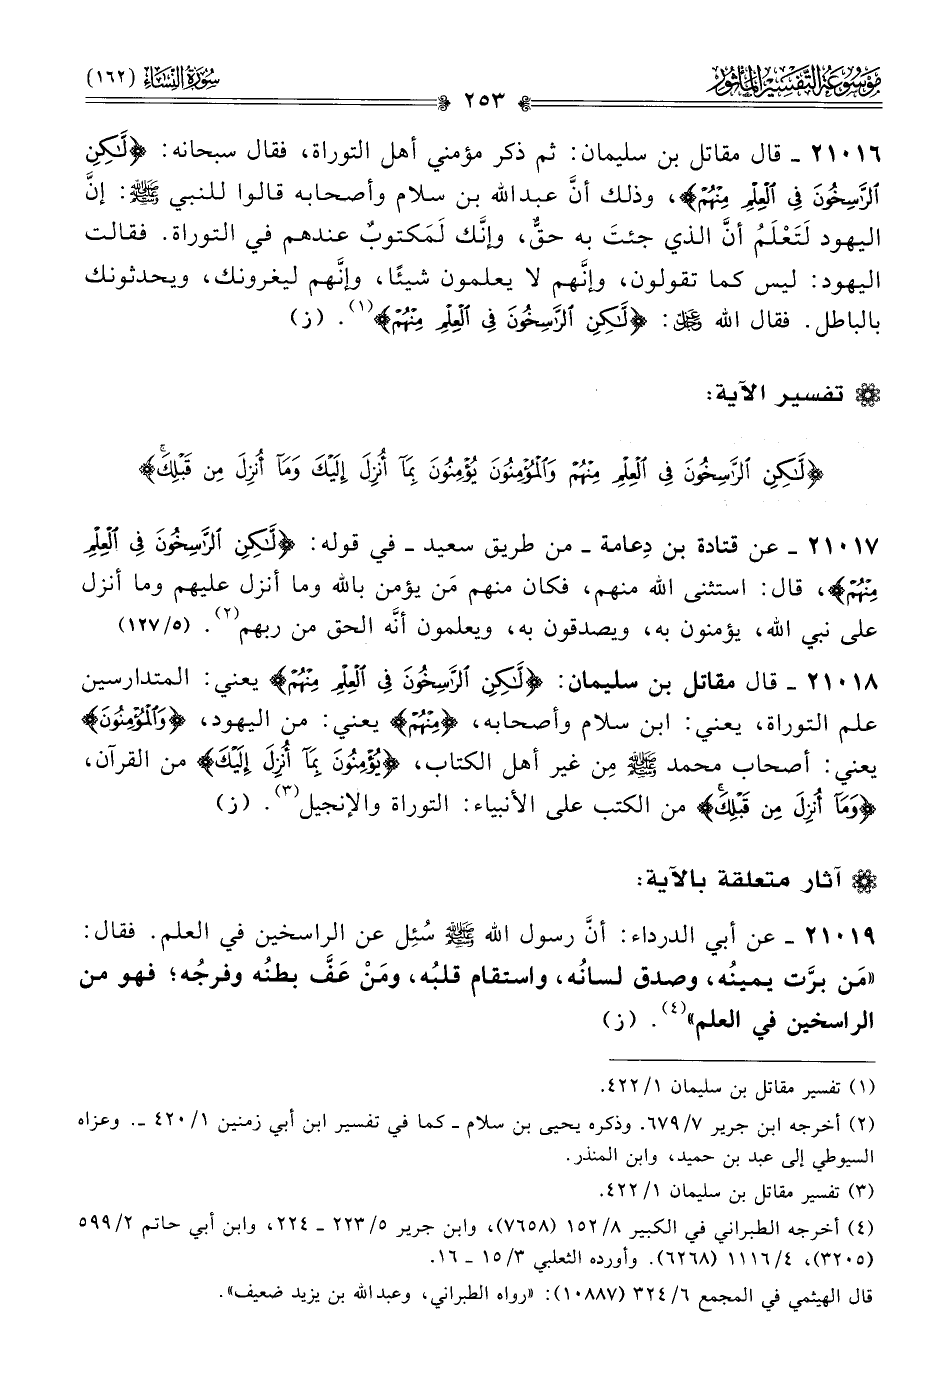 موسوعة التفسير المأثور
سورة النساء (١٦٢)
٢٥٣
٢١٠١٦ ـ قال مقاتل بن سليمان: ثم ذكر مؤمني أهل التوراة، فقال سبحانه: ﴿لَّٰكِنِ
ٱلرَّٰسِخُونَ فِى ٱلْعِلْمِ مِنْهُمْ﴾، وذلك أنَّ عبدالله بن سلام وأصحابه قالوا للنبي ﷺ: إنَّ
اليهود لَتَعْلَمُ أنَّ الذي جئتَ به حقٌّ، وإنَّك لَمَكتوبٌ عندهم في التوراة. فقالت
اليهود: ليس كما تقولون، وإنَّهم لا يعلمون شيئًا، وإنَّهم ليغرونك، ويحدثونك
بالباطل. فقال الله ﷻ: ﴿لَّٰكِنِ ٱلرَّٰسِخُونَ فِى ٱلْعِلْمِ مِنْهُمْ﴾(١). (ز)
تفسير الآية:
﴿لَّٰكِنِ ٱلرَّٰسِخُونَ فِى ٱلْعِلْمِ مِنْهُمْ وَٱلْمُؤْمِنُونَ يُؤْمِنُونَ بِمَآ أُنزِلَ إِلَيْكَ وَمَآ أُنزِلَ مِن قَبْلِكَۚ﴾
٢١٠١٧ ـ عن قتادة بن دِعامة ـ من طريق سعيد ـ في قوله: ﴿لَّٰكِنِ ٱلرَّٰسِخُونَ فِى ٱلْعِلْمِ
مِنْهُمْ﴾، قال: استثنى الله منهم، فكان منهم مَن يؤمن بالله وما أنزل عليهم وما أنزل
على نبي الله، يؤمنون به، ويصدقون به، ويعلمون أنَّه الحق من ربهم(٢). (١٢٧/٥)
٢١٠١٨ ـ قال مقاتل بن سليمان: ﴿لَّٰكِنِ ٱلرَّٰسِخُونَ فِى ٱلْعِلْمِ مِنْهُمْ﴾ يعني: المتدارسين
علم التوراة، يعني: ابن سلام وأصحابه، ﴿مِنْهُمْ﴾ يعني: من اليهود، ﴿وَٱلْمُؤْمِنُونَ﴾
يعني: أصحاب محمد ﷺ مِن غير أهل الكتاب، ﴿يُؤْمِنُونَ بِمَآ أُنزِلَ إِلَيْكَ﴾ من القرآن،
﴿وَمَآ أُنزِلَ مِن قَبْلِكَۚ﴾ من الكتب على الأنبياء: التوراة والإنجيل(٣). (ز)
آثار متعلقة بالآية:
٢١٠١٩ ـ عن أبي الدرداء: أنَّ رسول الله ﷺ سُئِل عن الراسخين في العلم. فقال:
«مَن برَّت يمينُه، وصدق لسانُه، واستقام قلبُه، ومَنْ عَفَّ بطنُه وفرجُه؛ فهو من
الراسخين في العلم»(٤). (ز)
(١) تفسير مقاتل بن سليمان ٤٢٢/١.
(٢) أخرجه ابن جرير ٦٧٩/٧. وذكره يحيى بن سلام ـ كما في تفسير ابن أبي زمنين ٤٢٠/١ ـ. وعزاه
السيوطي إلى عبد بن حميد، وابن المنذر.
(٣) تفسير مقاتل بن سليمان ٤٢٢/١.
(٤) أخرجه الطبراني في الكبير ١٥٢/٨ (٧٦٥٨)، وابن جرير ٢٢٣/٥ ـ ٢٢٤، وابن أبي حاتم ٥٩٩/٢
(٣٢٠٥)، ١١١٦/٤ (٦٢٦٨). وأورده الثعلبي ١٥/٣ ـ ١٦.
قال الهيثمي في المجمع ٣٢٤/٦ (١٠٨٨٧): «رواه الطبراني، وعبدالله بن يزيد ضعيف».